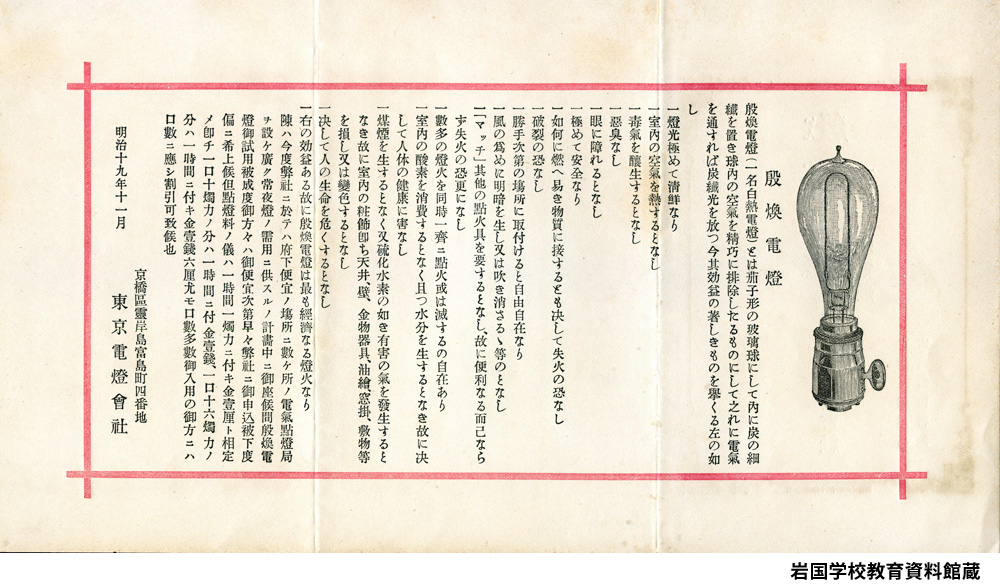 殷煥電燈
殷煥電燈(一名白熱電燈)とは茄子形の玻璃球にして內に炭の細
纎を置き球內の空氣を精巧に排除したるものにして之れに電氣
を通すれば炭纎光を放つ今其効益の著しきものを擧くる左の如
し
一燈光極めて淸鮮なり
一室內の空氣を熱するとなし
一毒氣を釀生するとなし
一惡臭なし
一眼に障れるとなし
一極めて安全なり
一如何に燃へ易き物質に接するとも决して失火の恐なし
一破裂の恐なし
一勝手次第の塲所に取付けると自由自在なり
一風の爲めに明暗を生し又は吹き消さるゝ等のとなし
一「マッチ」其他の點火具を要するとなし、故に便利なる而已なら
ず失火の恐更になし
一數多の燈火を同時一齊に點火或は滅するの自在あり
一室內の酸素を消費するとなく且つ水分を生するとなき故に决
して人体の健康に害なし
一煤煙を生するとなく又硫化水素の如き有害の氣を發生すると
なき故に室內の粧飾卽ち天井、壁、金物器具、油繪、窓掛、敷物等
を損し又は變色するとなし
一决して人の生命を危くするとなし
一右の効益ある故に殷煥電燈は最も經濟なる燈火なり
陳ハ今度弊社ニ於テハ府下便宜ノ塲所ニ數ケ所ノ電氣點燈局
ヲ設ケ廣ク常夜燈ノ需用ニ供スルノ計畫中ニ御座候間殷煥電
燈御試用被成度御方々ハ御便宜次第早々弊社ニ御申込被下度
偏ニ希上候但點燈料ノ儀ハ一時間一燭力ニ付キ金壹厘ト相定
メ卽チ一口十燭力ノ分ハ一時間ニ付金壹錢、一口十六燭力ノ
分ハ一時間ニ付キ金壹錢六厘尤モ口數多數御入用の御方ニハ
口數ニ應シ割引可致候也
明治十九年十一月
京橋區靈岸島富島町四番地
東京電燈會社
岩国学校教育資料館蔵